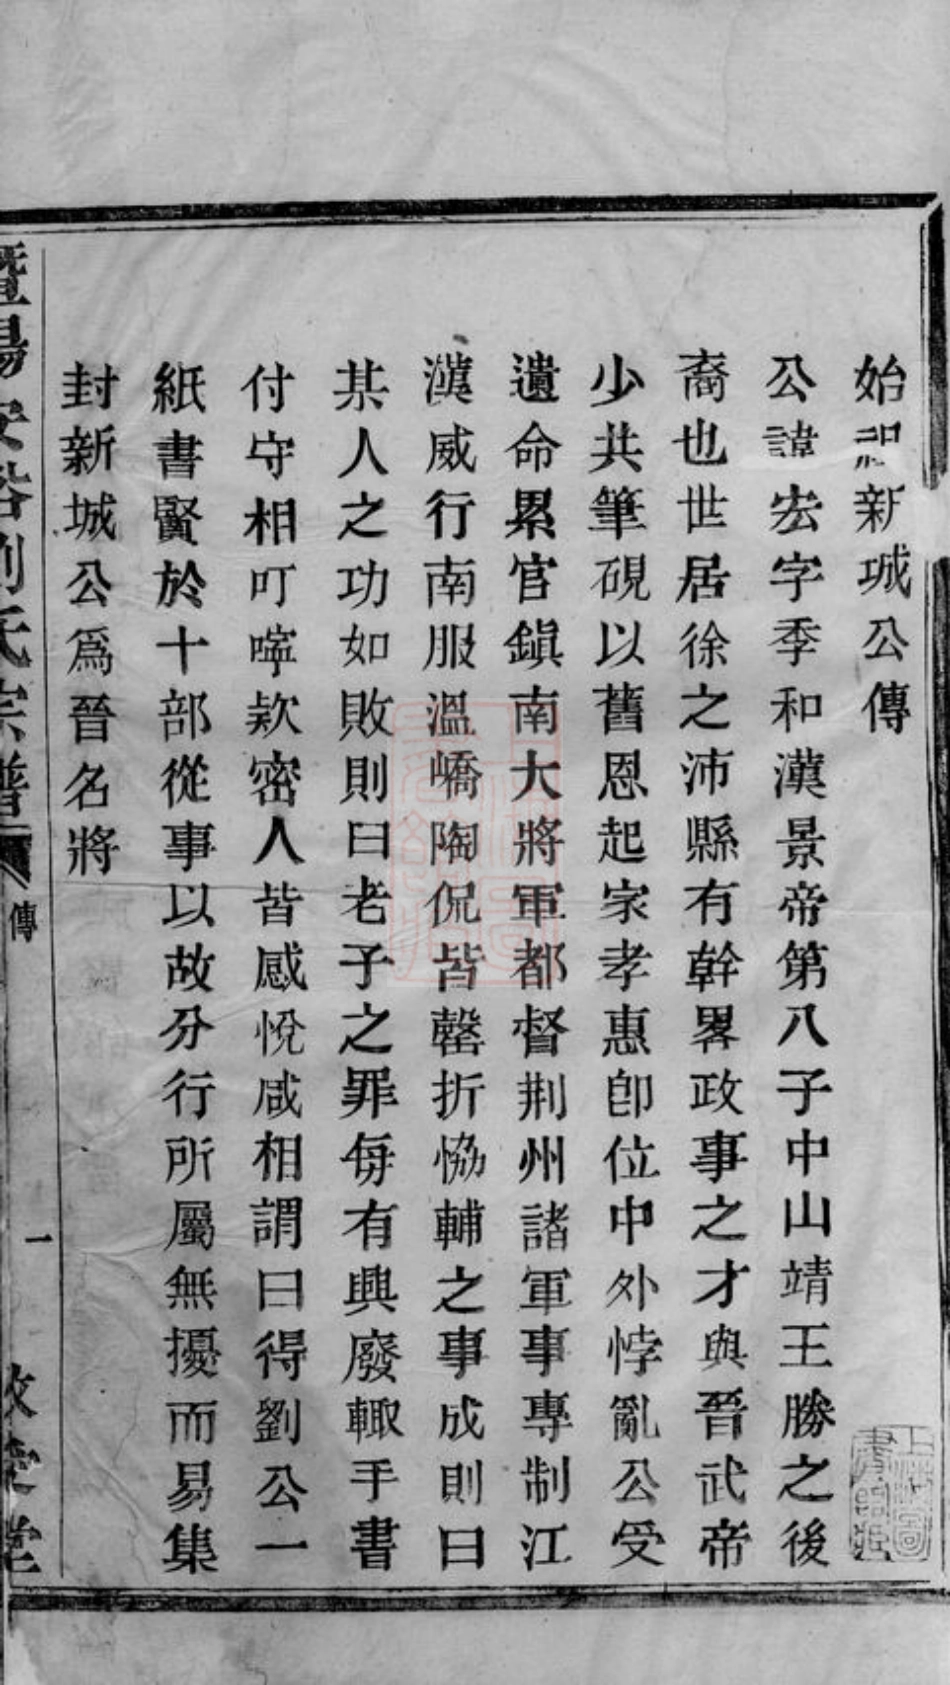 始祖新城公傳
公諱宏字季和漢景帝第八子中山靖王勝之後
裔也世居徐之沛縣有幹畧政事之才與晉武帝
少共筆硯以舊恩起家孝惠卽位中外悖亂公受
遺命累官鎮南大將軍都督荆州諸軍事專制江
漢威行南服溫嶠陶侃皆罄折恊輔之事成則曰
某人之功如敗則曰老子之罪每有興廢輙手書
付守相叮嚀欵密人皆感悅咸相謂曰得劉公一
紙書賢於十部從事以故分行所屬無擾而易集
封新城公爲晉名將
暨陽安 劉氏宗譜
傳
一
堂